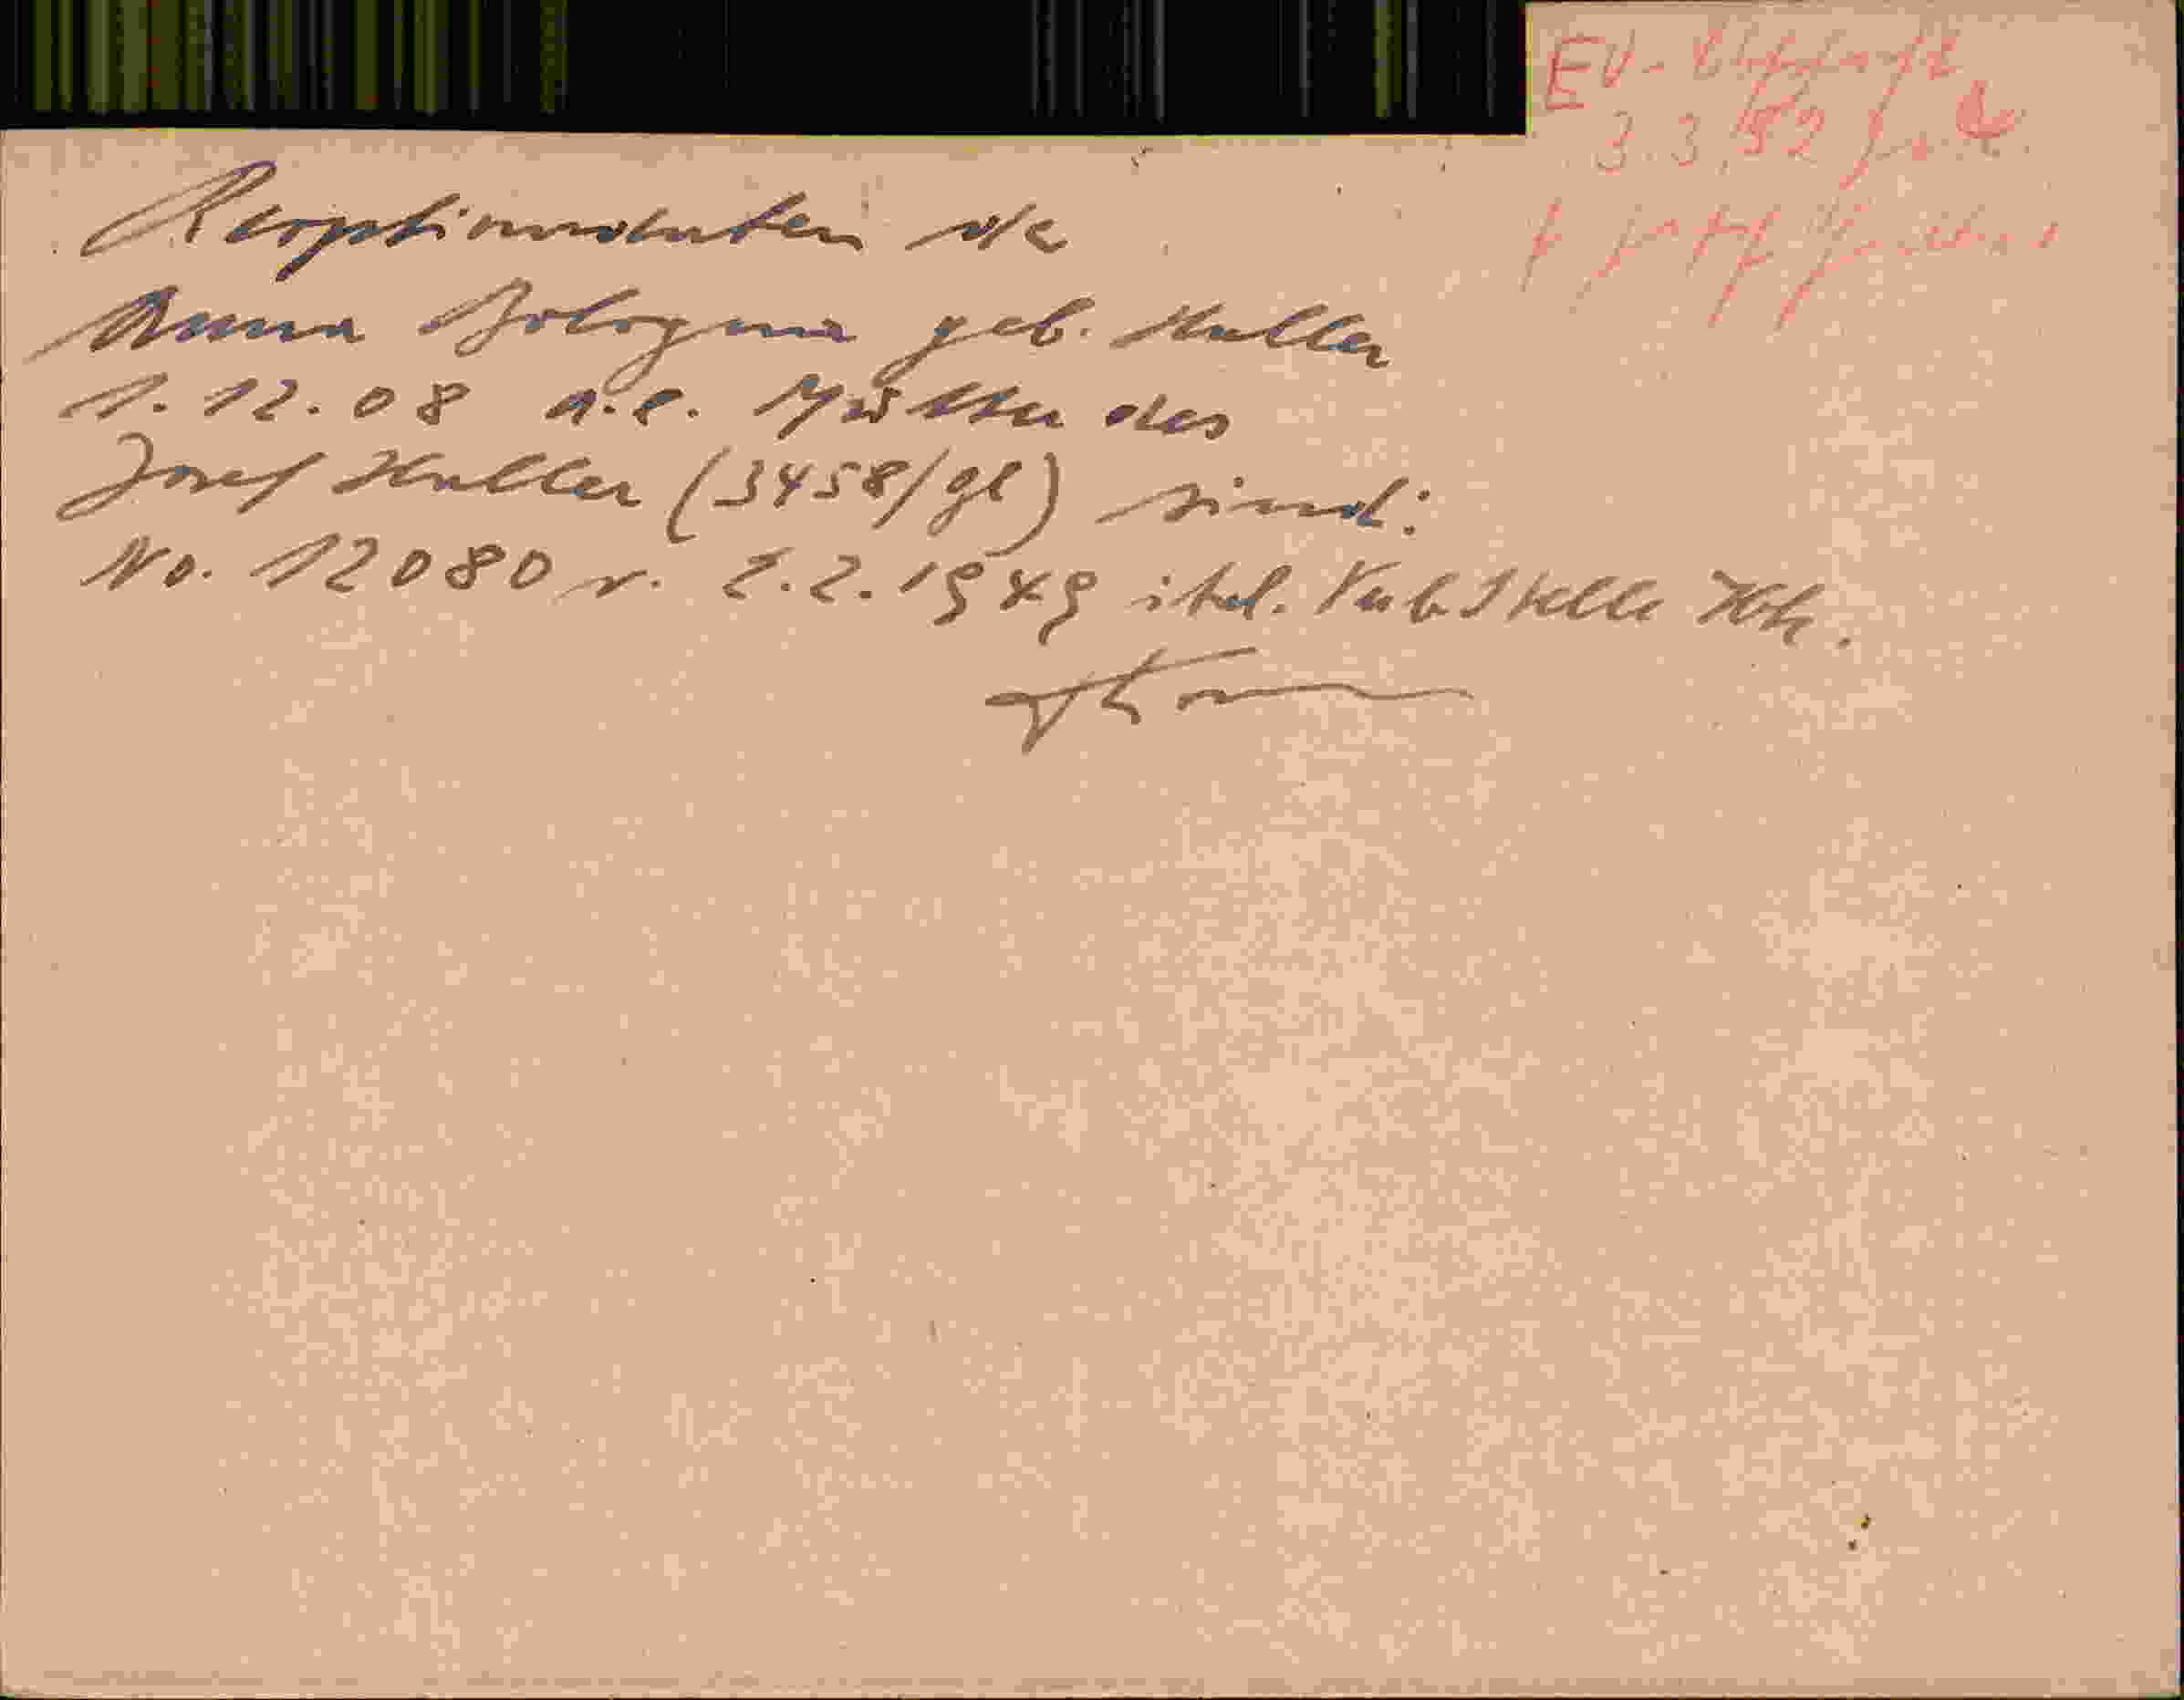 EV-
3.3.52
Reoptionsdaten der
Anna Bologna geb. Haller
1. 12. 08 a.e. Mutter des
Josef Haller (3458/gl) sind:
No. 12080 v. 2.2.1949 ital. Verb. Stelle Ibk.